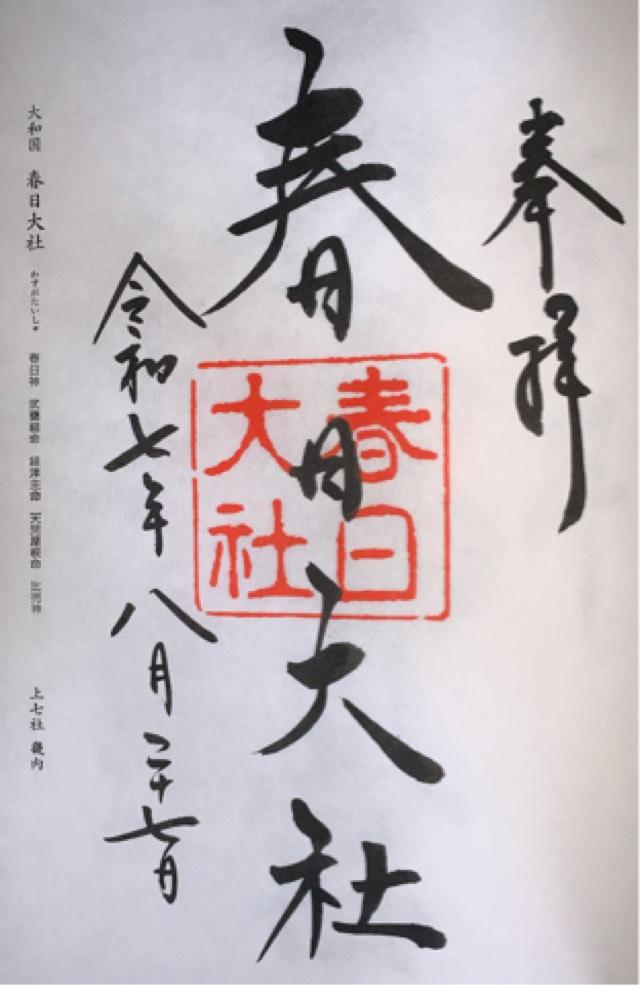 奉拝
春日大社
春日大社
令和七年八月二十七日
大和国 春日大社 かすがたいしゃ 春日神 武甕槌命 経津主命 天児屋根命 比売神 上七社 畿内